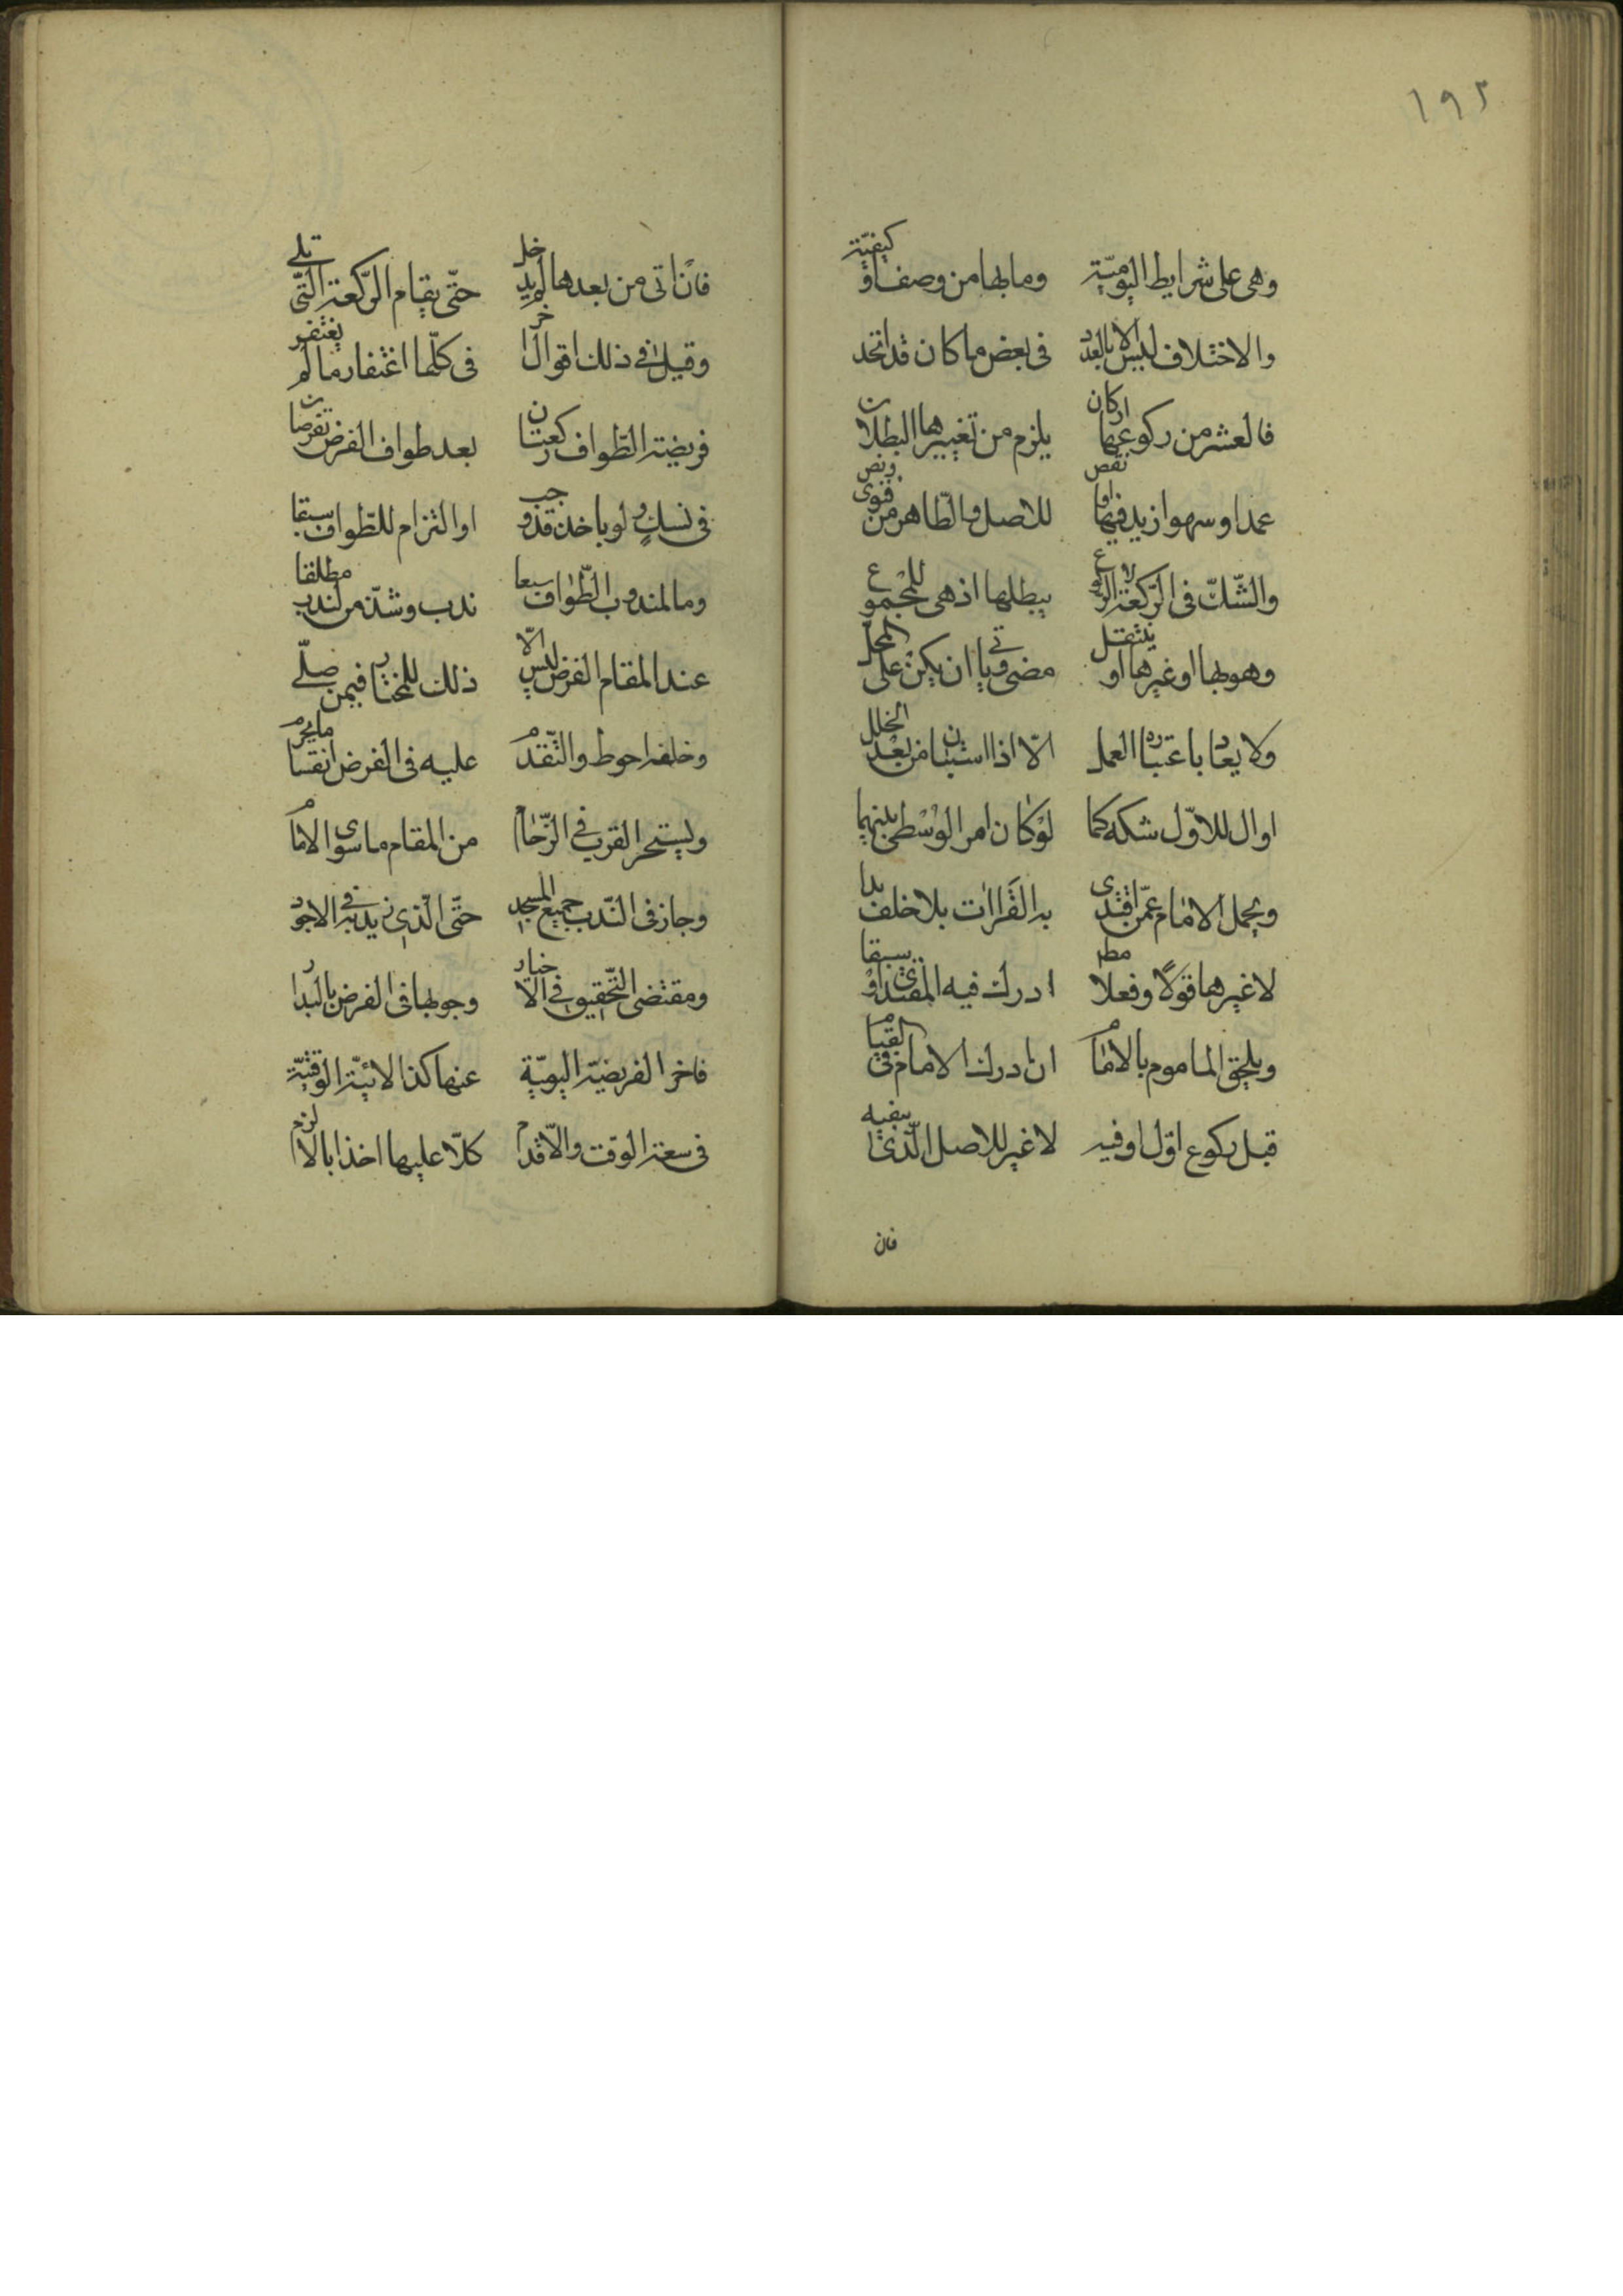 ١٩٢
وهى على شرايط اليوميّة وما بها من وصف او كيفيّة
والاختلاف ليس الا بالعدد فى بعض ما كان قد اتحد
فالعشر من ركوعها اركان يلزم من تغييرها البطلان
عمدا وسهوا زيد فيها او نقص للاصل والظاهر من فتوى ونص
والشّكّ فى الرّكعة لا الركوع يبطلها اذ هى للمجموع
وهو بها او غيرها او ينتقل مضى وياتى ان يكن على المحل
ولا يعاد باعتباره العمل الّا اذا استبان من بعد الخلل
اوال للاوّل شكه كما لو كان امر الوسطى بينهما
ويحمل الامام عمّن اقتدى به القراات بلا خلف بدا
لا غيرها قولا وفعلا مطلقا ادرك فيه المقتدى او سبقا
ويلحق الماموم بالامام ان ادرك الامام فى القيام
قبل ركوع اوّل او فيه لا غير للاصل الّذى ينفيه
فان
فان اتى من بعدها لم يدخل حتّى يقام الرّكعة الّتى تلى
وقيل فى ذلك اقوال اخر فى كلّها اغتفار ما لم يغتفر
فريضة الطّواف ركعتان بعد طواف الفرض تفرضان
فى نسك ولو باخذ قد وجب او التزام للطّواف سبقا
وما لمندوب الطّواف سبعا ندب وشذّ من لندب مطلقا
عند المقام الفرض ليس الّا ذلك للمختار فيمن صلّى
وخلفه احوط والتّقدّم عليه فى الفرض انقساما يحرم
وليستحر القرب فى الزّحام من المقام ما سوى الامام
وجاز فى النّدب جميع المسجد حتّى الّذى زيد به فى الاجود
ومقتضى التّحقيق فى الاخبار وجوبها فى الفرض بالبدار
فاخر الفريضة اليوميّة عنها كذا الاتية الوقتيّة
فى سعة الوقت والّا قدّم كلّا عليها اخذا بالالزم